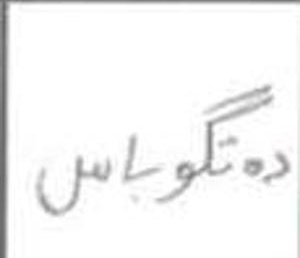 ده تگو باس